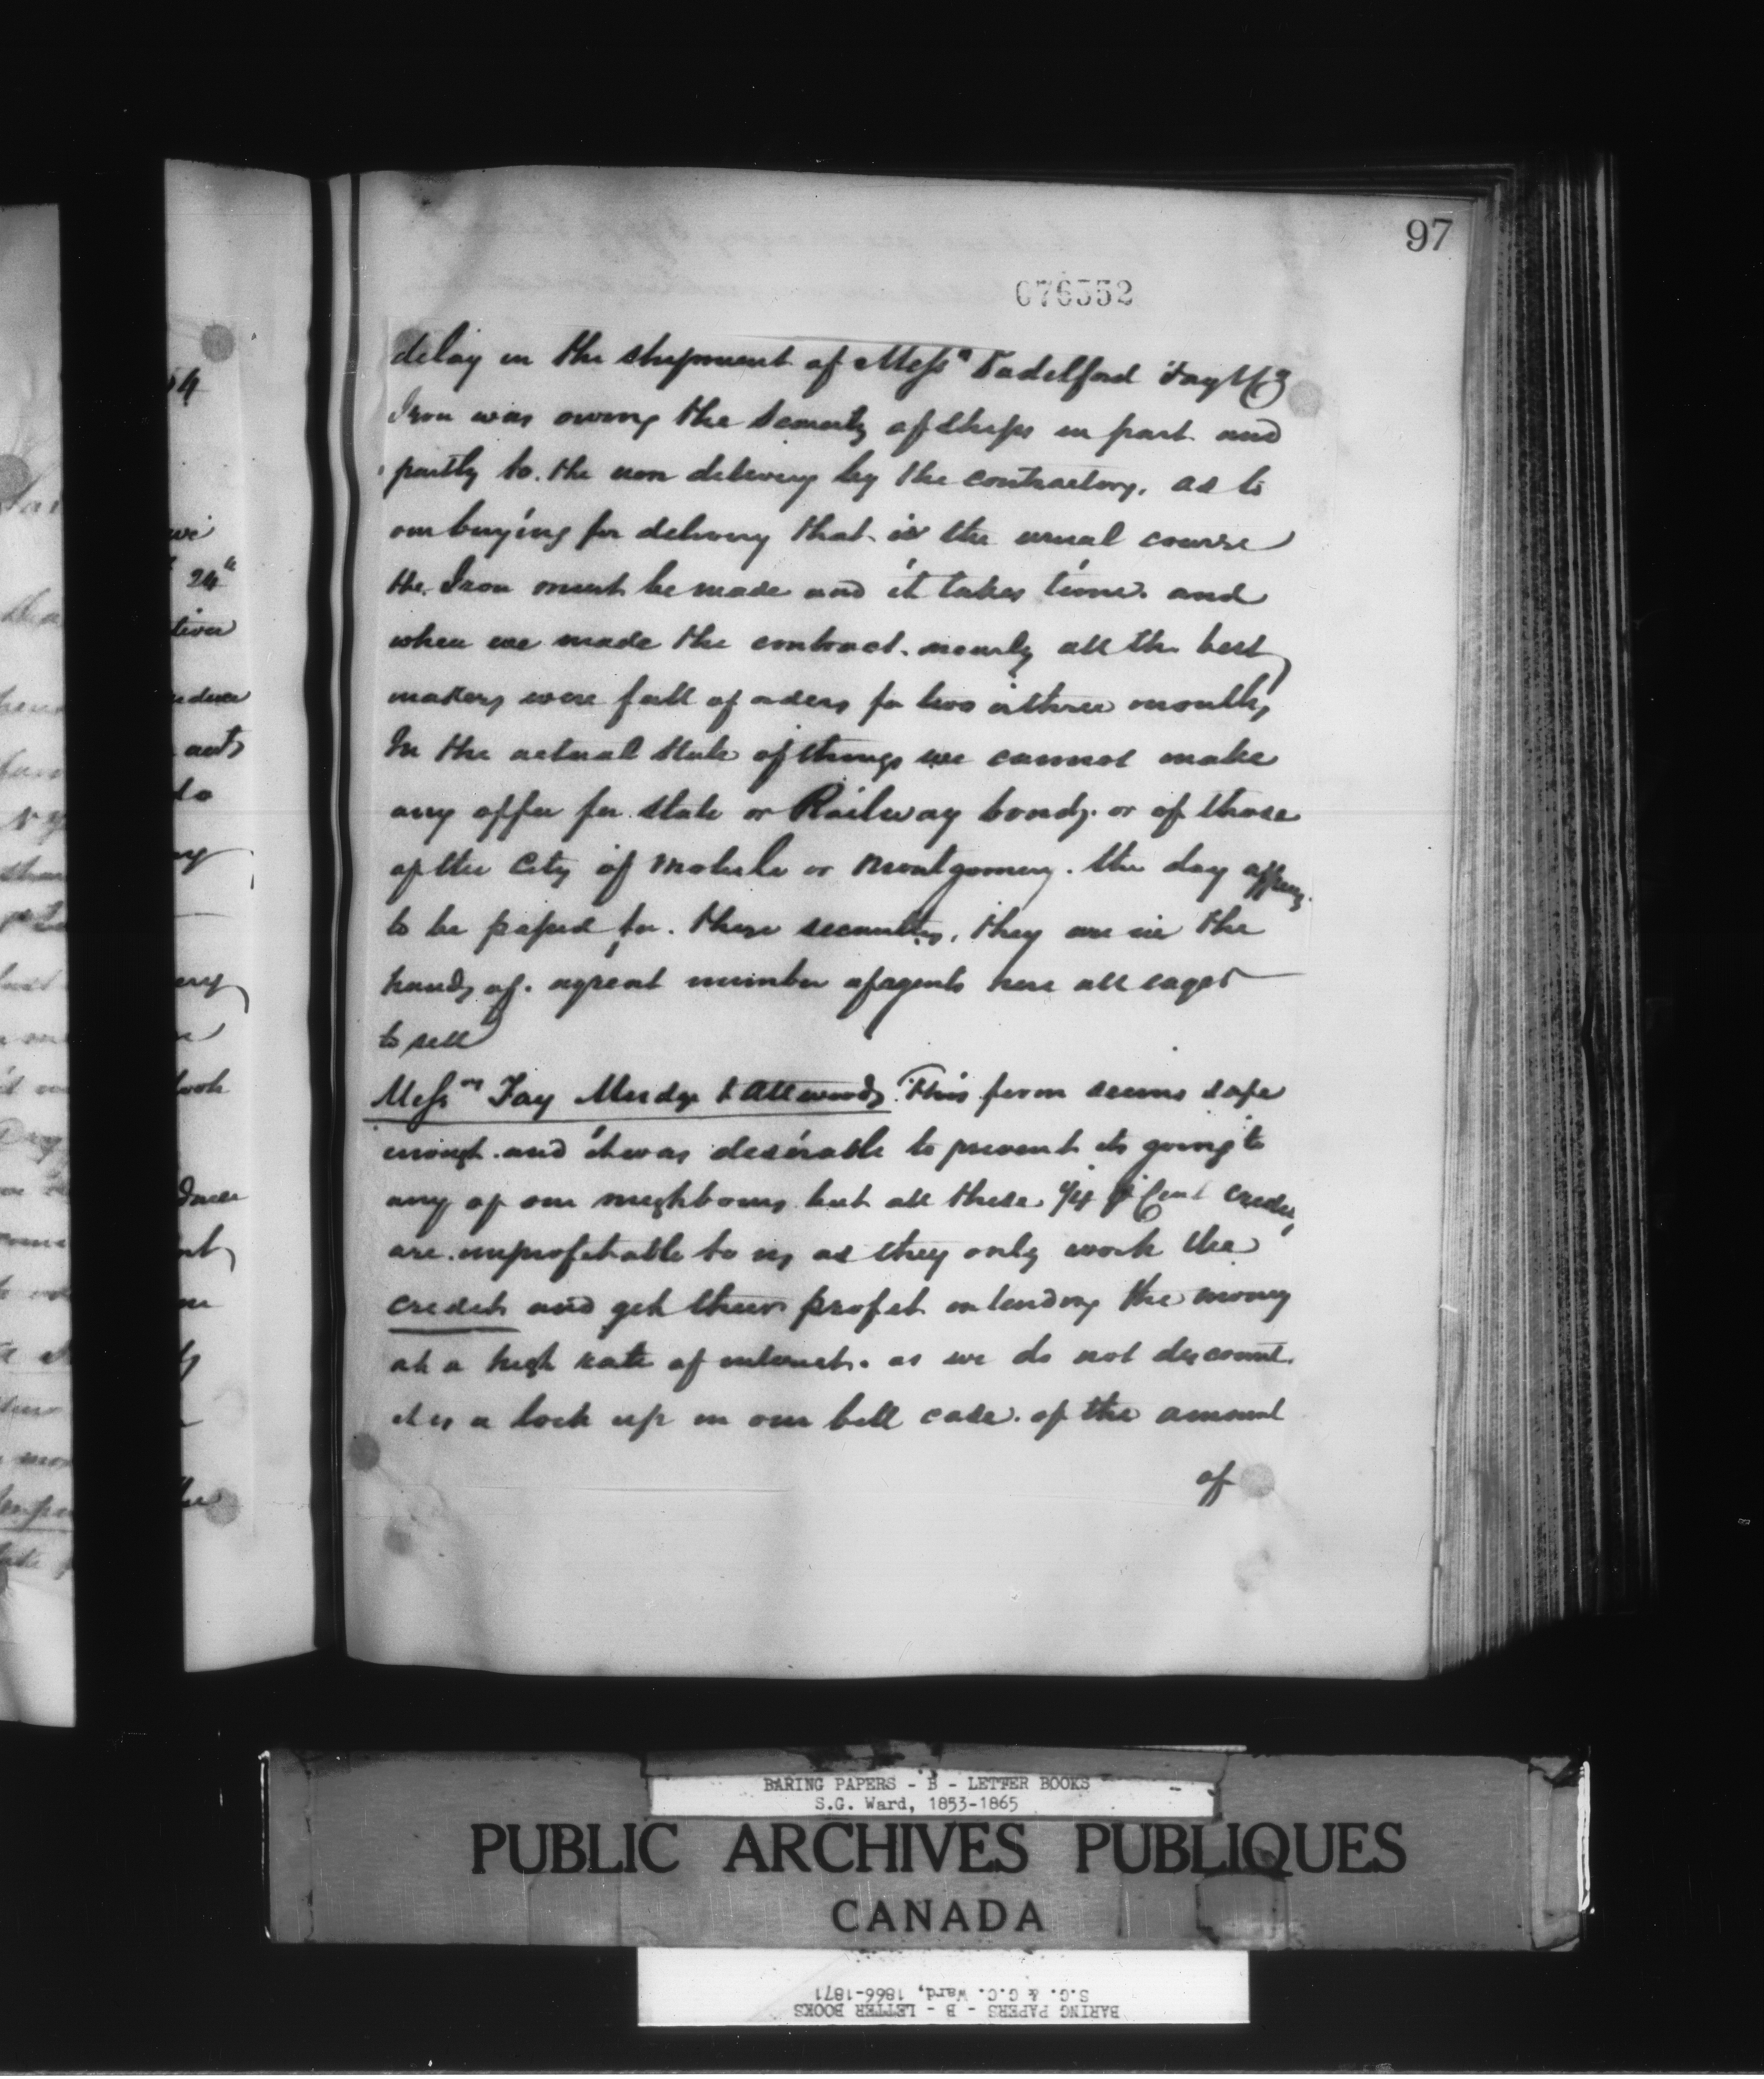 97
076552
delay in the shipment of Messrs Padelford Fay & Co
Iron was owing the scarcity of ships in part and
partly to the non delivery by the contractors, as to
our buying for delivery that is the usual course
the Iron must be made and it takes time. and
when we made the contract. nearly all the best
makers were full of orders for two or three months,
In the actual state of things we cannot make
any offer for State or Railway bonds. or of those
of the City of Mobile or Montgomery. the day
to be passed for. these securities, they are in the
hands of. a great number of agents here all eager
to sell
Messrs Fay Mudge & Attwood. This firm seems safe
enough. and it was desirable to prevent its going to
any of our neighbours but all these 1/4 p Cent credits
are. unprofitable to us as they only work the
credit and get their profit on lending the money
at a high rate of interest. as we do not discount.
it is a lock up in our bill case. of the amount
of
54
we
24
tion
ants
do
ny
ery
look
nt
me
the
BARING PAPERS - B - LETTER BOOKS
S.G. Ward, 1853-1865
PUBLIC ARCHIVES PUBLIQUES
CANADA
BARING PAPERS - B - LETTER BOOKS
S.G. & G.C. Ward, 1866-1871